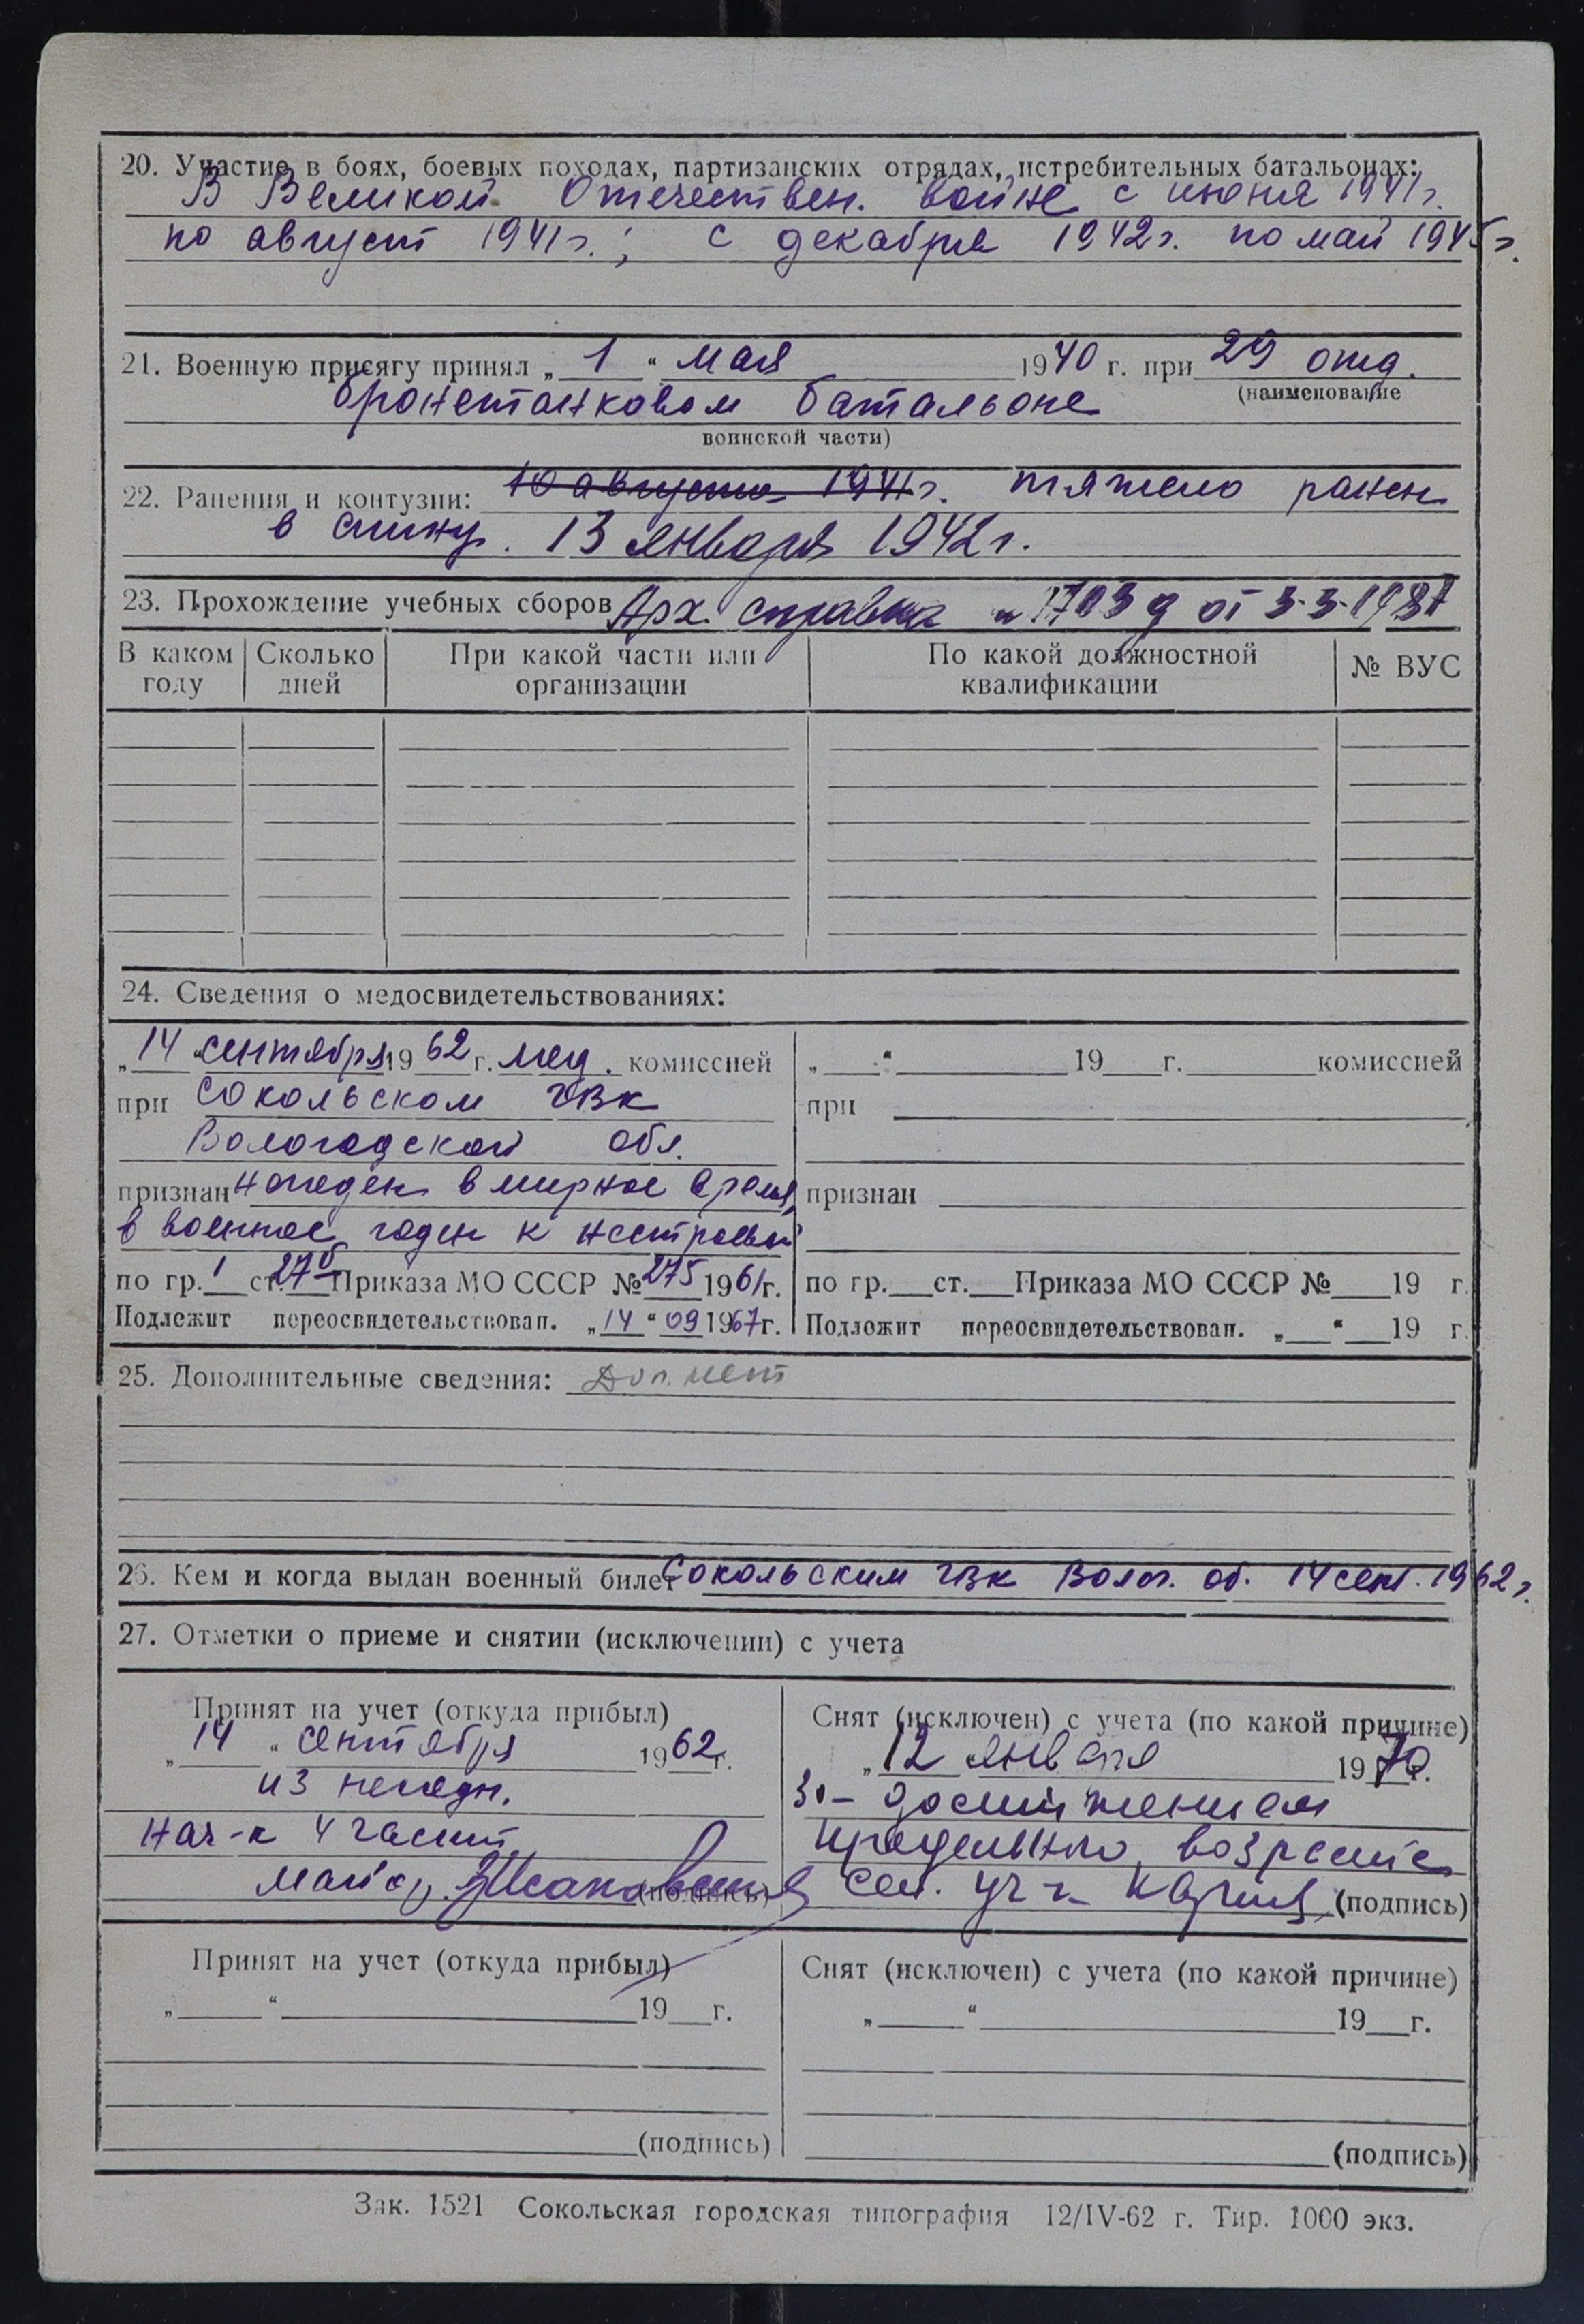 20. Участие в боях, боевых походах, партизанских отрядах, истребительных батальонах:
В Великой Отечествен. войне с июня 1941г.
по август 1941г.; с декабря 1942г. по май 1945г.
21. Военную присягу принял „ 1 “ мая 1940 г. при 29 отд.
(наименование
бронетанковом батальоне
воинской части)
22. Ранения и контузии: 10 августа 1941г. тяжело ранен
в спину. 13 января 1942г.
23. Прохождение учебных сборов Арх. справка от 3-3-1987
В каком году Сколько дней При какой части или организации По какой должностной квалификации № ВУС
24. Сведения о медосвидетельствованиях:
„ 14 “ сентября 1962 г. мед. комиссией
при Сокольском ГВК
Вологодской обл.
признан негоден в мирное время,
в военное годен к нестроевой
по гр. 1 ст. 27б Приказа МО СССР № 275 1961г.
Подлежит переосвидетельствован. „ 14 “ 09 1967г.
„ “ 19 г. комиссией
при
признан
по гр. ст. Приказа МО СССР № 19 г.
Подлежит переосвидетельствован. „ “ 19 г.
25. Дополнительные сведения: Доп. нет
26. Кем и когда выдан военный билет Сокольским ГВК Волог. об. 14 сент. 1962г.
27. Отметки о приеме и снятии (исключении) с учета
Принят на учет (откуда прибыл)
„ 14 “ сентября 1962г.
из негодн.
нач-к 4 части
майор
(подпись)
Снят (исключен) с учета (по какой причине)
„ 12 января 1970г.
за- достижением
предельного возраста
(подпись)
Принят на учет (откуда прибыл)
„ “ 19 г.
(подпись)
Снят (исключен) с учета (по какой причине)
„ “ 19 г.
(подпись)
Зак. 1521 Сокольская городская типография 12/IV-62 г. Тир. 1000 экз.